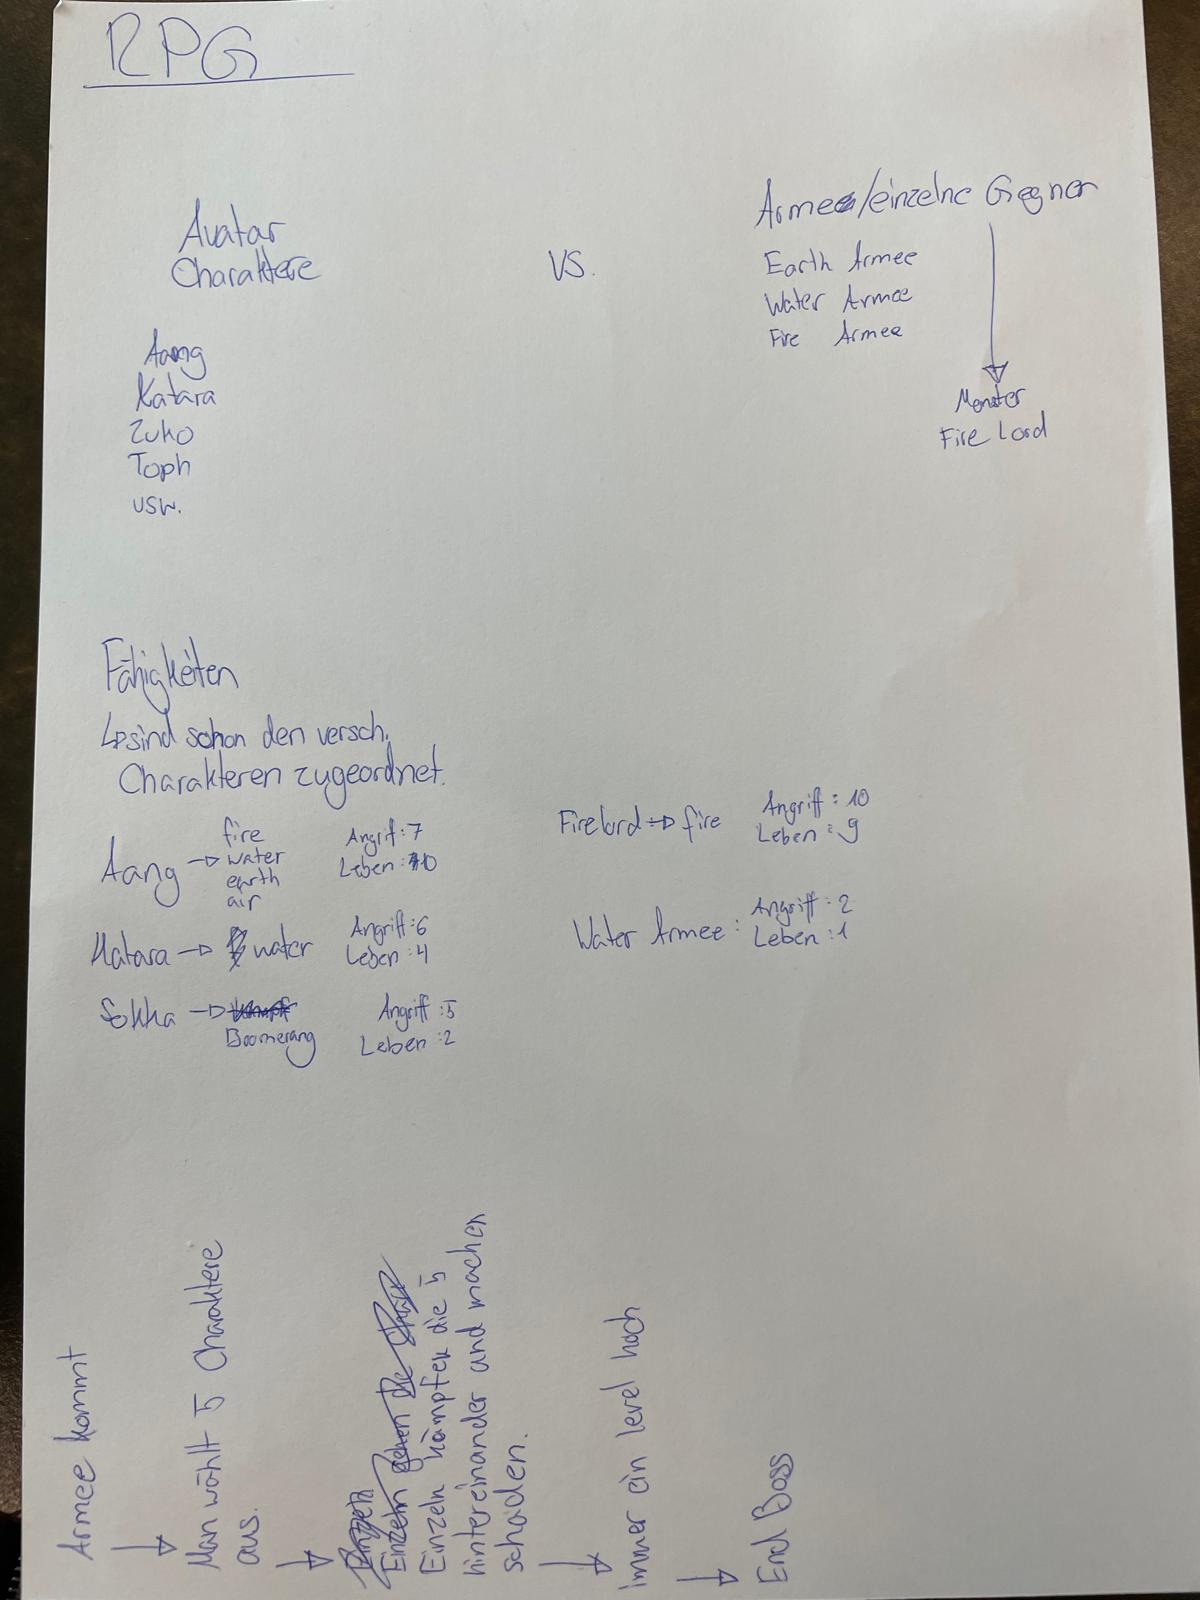 RPG
Avatar
Charaktere
VS.
Armee/einzelne Gegner
Earth Armee
Water Armee
Fire Armee
Monster
Fire Lord
Aang
Katara
Zuko
Toph
usw.
Fähigkeiten
↳ sind schon den versch.
Charakteren zugeordnet.
Aang → fire
water
earth
air
Angrif: 7
Leben: 10
Katara → water
Angriff: 6
Leben: 4
Sokka →
Boomerang
Angriff: 5
Leben: 2
Firelord → fire
Angriff: 10
Leben: 9
Water Armee:
Angriff: 2
Leben: 1
Armee kommt
↓
Man wählt 5 Charaktere
aus.
↓
Einzeln gehen die
Einzeln kämpfen die 5
hintereinander und machen
schaden.
↓
immer ein level hoch
↓
End Boss